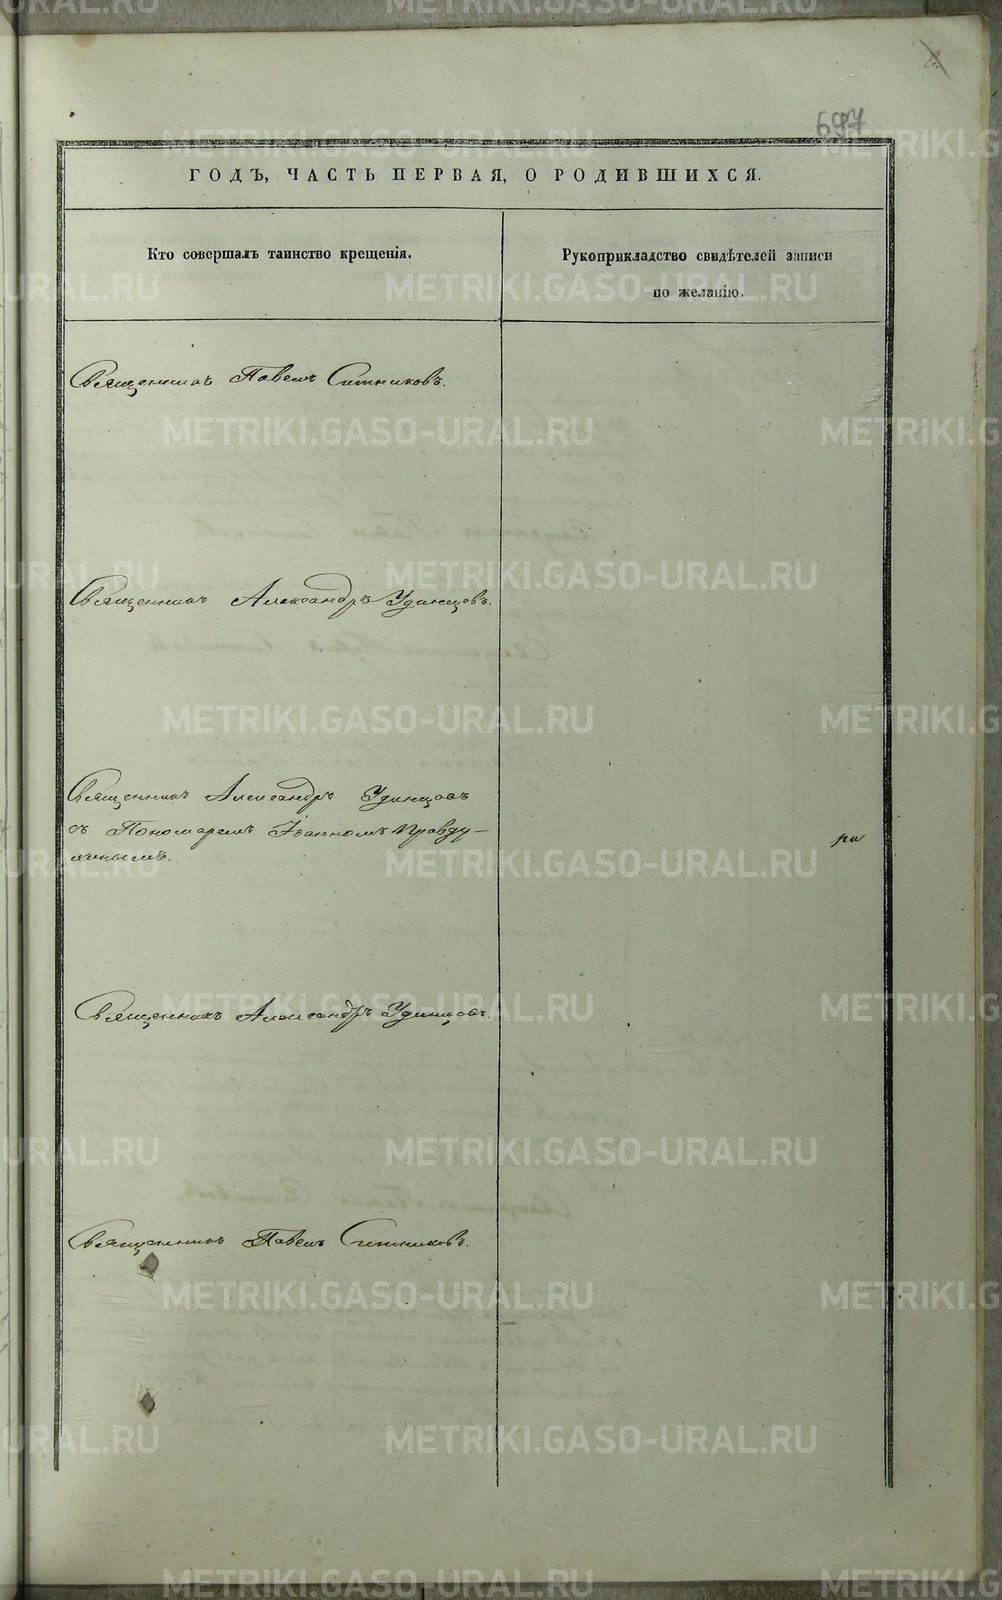 697
ГОДЪ, ЧАСТЬ ПЕРВАЯ, О РОДИВШИХСЯ.
Кто совершалъ таинство крещенія.
Рукоприкладство свидѣтелей записи
по желанію.
Священникъ Павелъ Ситниковъ.
Священникъ Александръ Удинцовъ.
Священникъ Александръ Удинцовъ
съ Пономаремъ Іоанномъ Правду-
хинымъ.
Священникъ Александръ Удинцовъ.
Священникъ Павелъ Ситниковъ.
METRIKI.GASO-URAL.RU